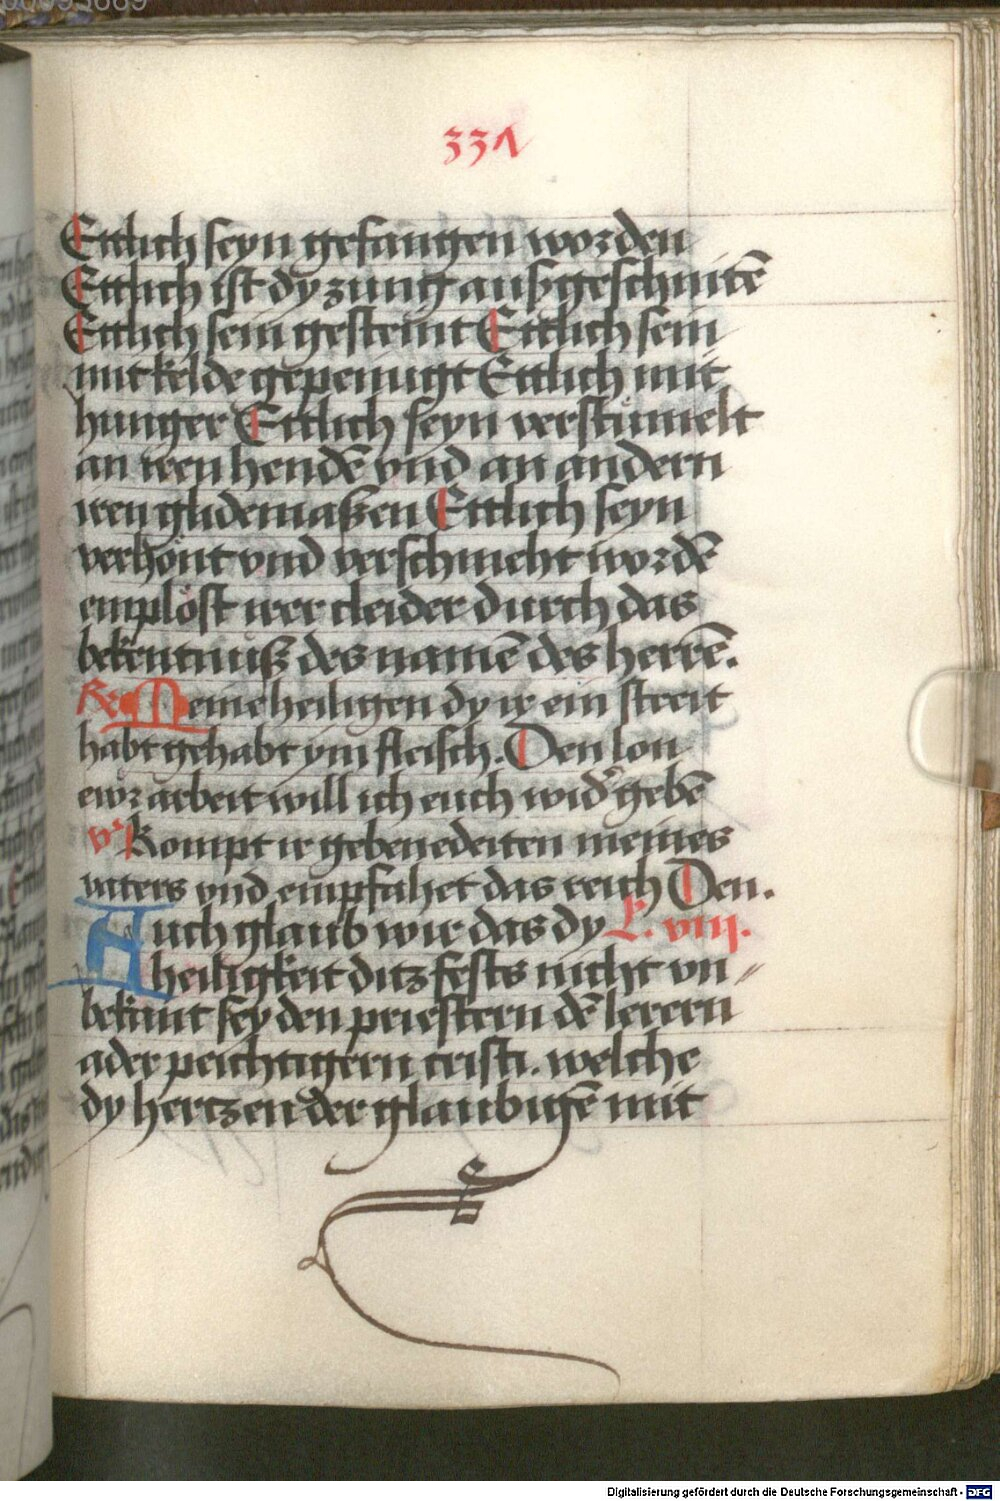 331
Ettlich seyn gefangen worden
Ettlich ist dy zung außgeschnitē
Ettlich sein gesteint Ettlich sein
mit kelde gepeinigt Ettlich mit
hunger Ettlich seyn verstumelt
an iren hendē vnd an andern
iren glidemaßen Ettlich seyn
verhönt vnd verschmeht wordē
emplöst irer cleider durch das
bekentnuß des namē des herrē.
R Meine heiligen dy ir ein streit
habt gehabt ym fleisch. Den lon
ewr arbeit will ich euch wid᷑ gebē
vs Kompt ir gebenedeiten meines
vaters vnd empfahet das reich Den.
Auch glaub wir das dy L. viij.
heiligkeit ditz fests nicht vn⸗
bekant sey den priestern dē lerern
ader peichtigern cristi. welche
dy hertzen der glaubigē mit
Digitalisierung gefördert durch die Deutsche Forschungsgemeinschaft - DFG